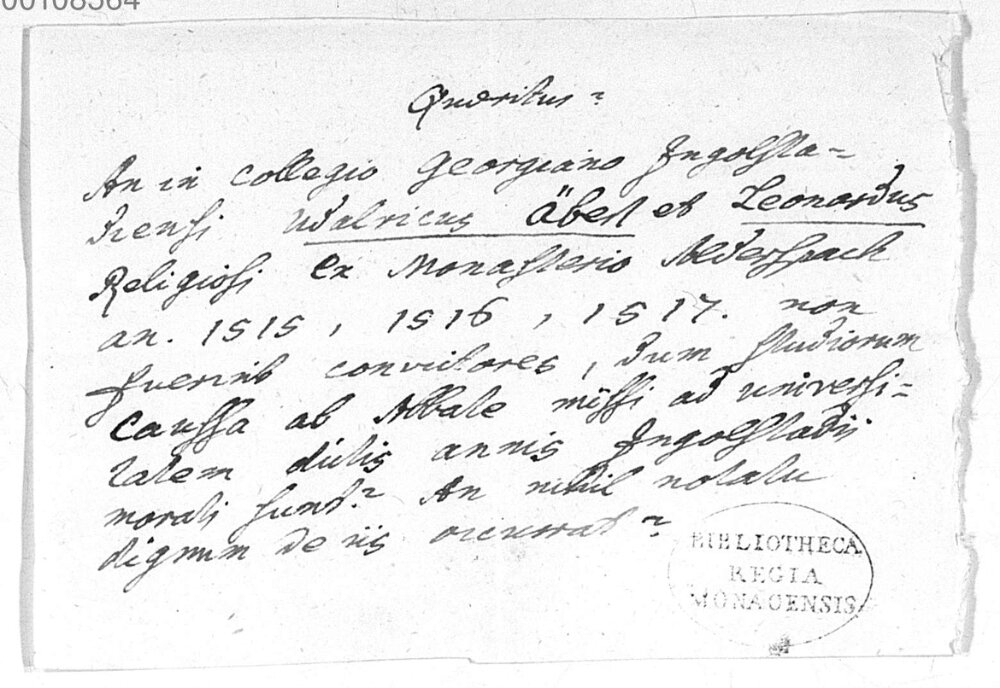 00108564
Quæritur:
An in collegio Georgiano Ingolsta=
diensi Udalricus Äberl et Leonardus
Religiosi ex Monasterio Alderspach
an. 1515, 1516, 1517. non
fuerint convictores, dum studiorum
caussa ab Abbate missi ad universi=
tatem dictis annis Ingolstadii
morati sunt? An nihil notatu
dignum de iis occurrat?
BIBLIOTHECA
REGIA
MONACENSIS